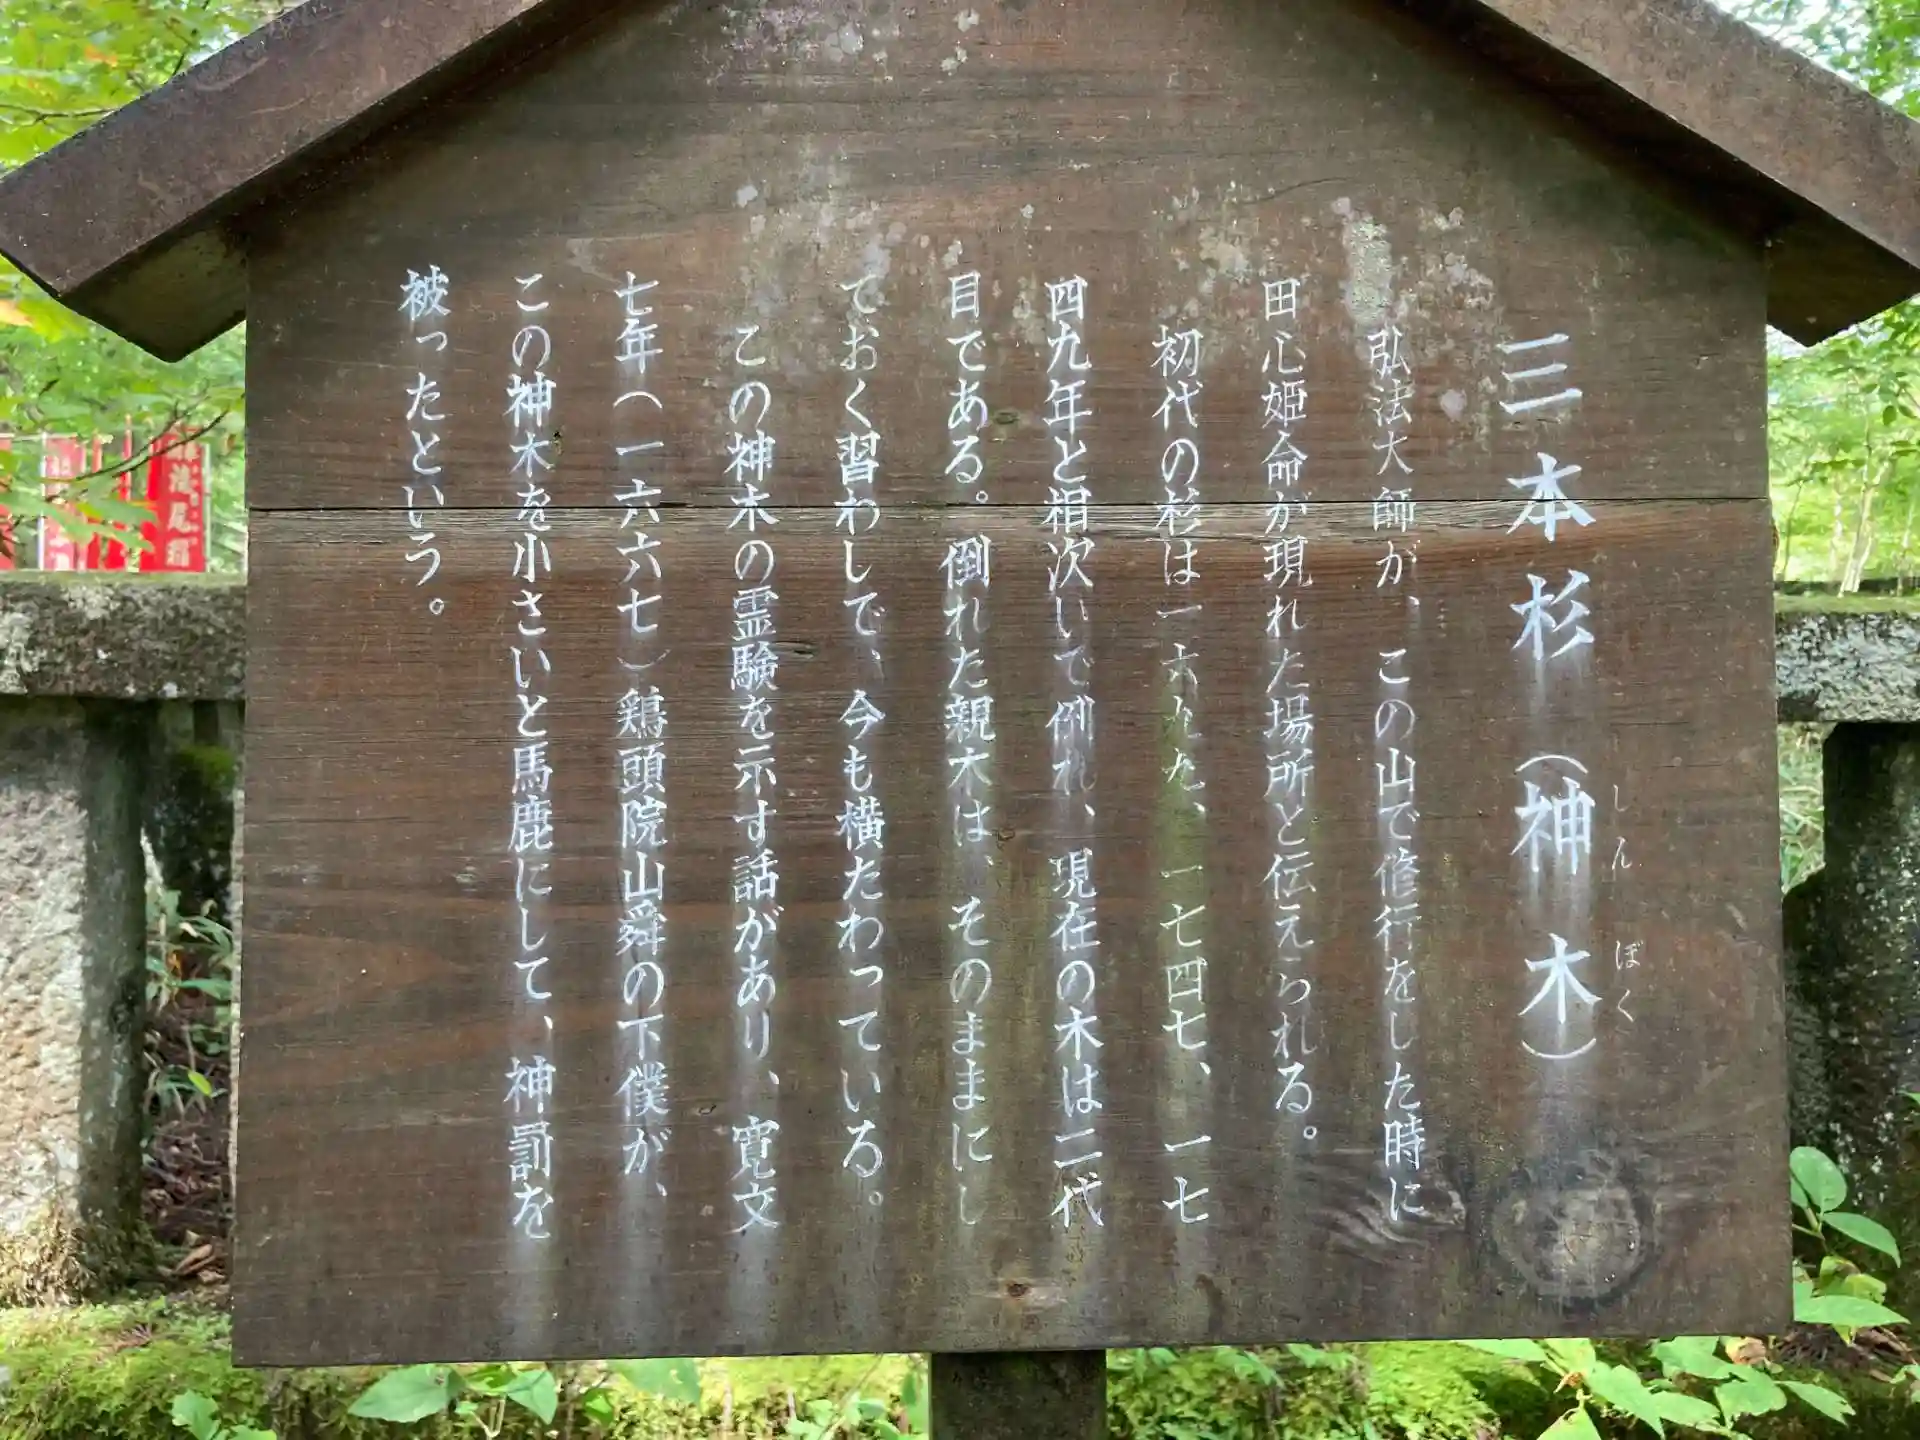 三本杉（神木）
しんぼく
弘法大師が、この山で修行をした時に
田心姫命が現れた場所と伝えられる。
初代の杉は一六九九、一七四七、一七
四九年と相次いで倒れ、現在の木は二代
目である。倒れた親木は、そのままにし
ておく習わしで、今も横たわっている。
この神木の霊験を示す話があり、寛文
七年（一六六七）鶏頭院山舜の下僕が、
この神木を小さいと馬鹿にして、神罰を
被ったという。
滝尾稲